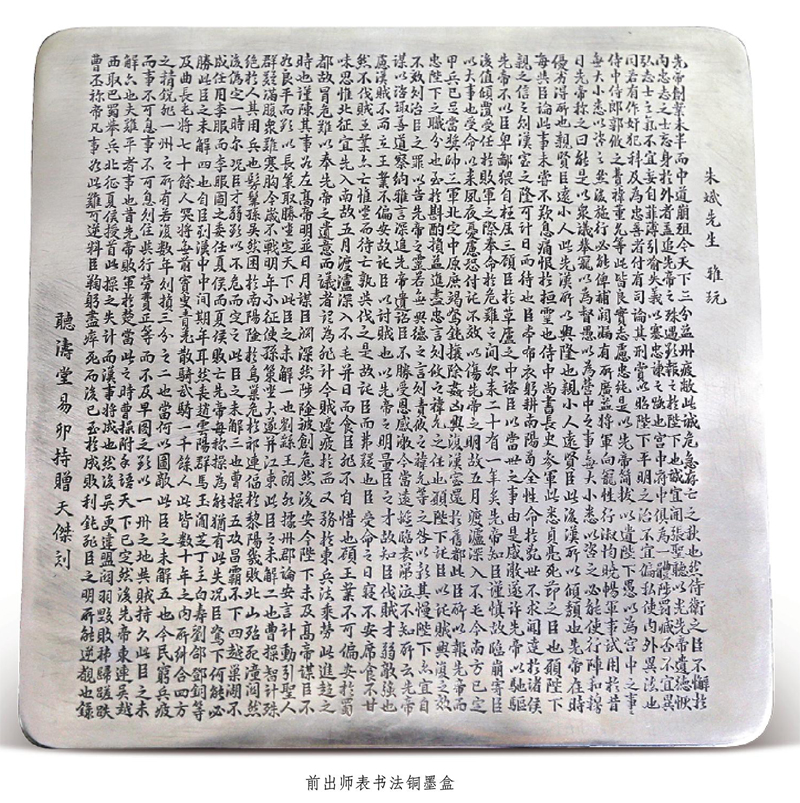 朱斌先生 雅玩
先帝創業未半而中道崩殂今天下三分益州疲敝此誠危急存亡之秋也然侍衛之臣不懈於
內忠志之士忘身於外者蓋追先帝之殊遇欲報之於陛下也誠宜開張聖聽以光先帝遺德恢
弘志士之氣不宜妄自菲薄引喻失義以塞忠諫之路也宮中府中俱為一體陟罰臧否不宜異
同若有作奸犯科及為忠善者付有司論其刑賞以昭陛下平明之治不宜偏私使內外異法也
侍中侍郎郭攸之費禕董允等此皆良實志慮忠純是以先帝簡拔以遺陛下愚以為宮中之事
無大小悉以咨之然後施行必能裨補闕漏有所廣益將軍向寵性行淑均曉暢軍事試用於昔
日先帝稱之曰能是以眾議舉寵以為督愚以為營中之事無大小悉以咨之必能使行陣和穆
優劣得所也親賢臣遠小人此先漢所以興隆也親小人遠賢臣此後漢所以傾頹也先帝在時
每與臣論此事未嘗不歎息痛恨於桓靈也侍中尚書長史參軍此悉貞亮死節之臣也願陛下
親之信之則漢室之隆可計日而待也臣本布衣躬耕南陽苟全性命於亂世不求聞達於諸侯
先帝不以臣卑鄙猥自枉屈三顧臣於草廬之中諮臣以當世之事由是感激遂許先帝以驅馳
後值傾覆受任於敗軍之際奉命於危難之間爾來二十有一年矣先帝知臣謹慎故臨崩寄臣
以大事也受命以來夙夜憂慮恐付託不效以傷先帝之明故五月渡瀘深入不毛今南方已定
甲兵已足當獎帥三軍北定中原庶竭駑鈍攘除姦凶興復漢室還於舊都此臣所以報先帝而
忠陛下之職分也至於斟酌損益進盡忠言則攸之禕允之任也願陛下託臣以討賊興復之效
不效則治臣之罪以告先帝之靈若無興德之言則責攸之禕允等之咎以彰其慢陛下亦宜自
謀以諮諏善道察納雅言深追先帝遺詔臣不勝受恩感激今當遠離臨表涕泣不知所云先帝
慮漢賊不兩立王業不偏安故託臣以討賊也以先帝之明量臣之才故知臣伐賊才弱敵強也
然不伐賊王業亦亡惟坐而待亡孰與伐之是故託臣而弗疑也臣受命之日寢不安席食不甘
味思惟北征宜先入南故五月渡瀘深入不毛并日而食臣非不自惜也顧王業不可偏安於蜀
都故冒危難以奉先帝之遺意而議者謂為非計今賊適疲於西又務於東兵法乘勞此進趨之
時也謹陳其事如左高帝明並日月謀臣淵深然涉險被創危然後安今陛下未及高帝謀臣不
如良平而欲以長策取勝坐定天下此臣之未解一也劉繇王朗各據州郡論安言計動引聖人
群疑滿腹眾難塞胸今歲不戰明年不征使孫策坐大遂并江東此臣之未解二也曹操智計殊
絕於人其用兵也髣髴孫吳然困於南陽險於烏巢危於祁連偪於黎陽幾敗北山殆死潼關然
後偽定一時爾況臣才弱而欲以不危而定之此臣之未解三也曹操五攻昌霸不下四越巢湖不
成任用李服而李服圖之委任夏侯而夏侯敗亡先帝每稱操為能猶有此失況臣駑下何能必
勝此臣之未解四也自臣到漢中中間期年耳然喪趙雲陽群馬玉閻芝丁立白壽劉郃鄧銅等
及曲長屯將七十餘人突將無前賨叟青羌散騎武騎一千餘人此皆數十年之內所糾合四方
之精銳非一州之所有若復數年則損三分之二也當何以圖敵此臣之未解五也今民窮兵疲
而事不可息事不可息則住與行勞費正等而不及早圖之欲以一州之地與賊持久此臣之未
解六也夫難平者事也昔先帝敗軍於楚當此之時曹操拊手謂天下已定然後先帝東連吳越
西取巴蜀舉兵北征夏侯授首此操之失計而漢事將成也然後吳更違盟關羽毀敗秭歸蹉跌
曹丕稱帝凡事如此難可逆料臣鞠躬盡瘁死而後已至於成敗利鈍非臣之明所能逆覩也錄
聽濤堂易卯持贈天傑刻
前出师表书法铜墨盒